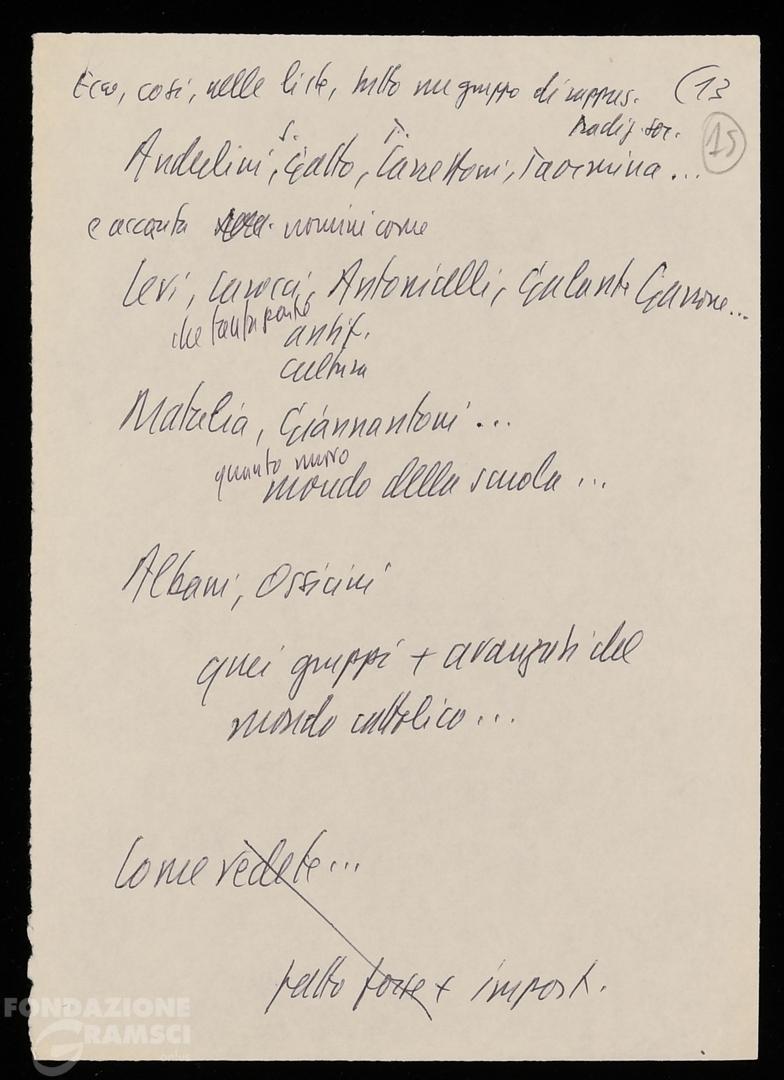 Ecco, così, nelle liste, tutto un gruppo di rappres. (13
tradiz. soc. 15
s. T.
Anderlini, Gatto, Carettoni, Taormina...
e accanto uomini come
Levi, Carocci, Antonicelli, Galante Garrone...
che tanta parte
antif.
cultura
Matalia, Giannantoni...
quanto nuovo
mondo della scuola...
Albani, Ossicini
quei gruppi + avanzati del
mondo cattolico...
Come vedete...
fatto forse + import.
FONDAZIONE
GRAMSCI
onlus